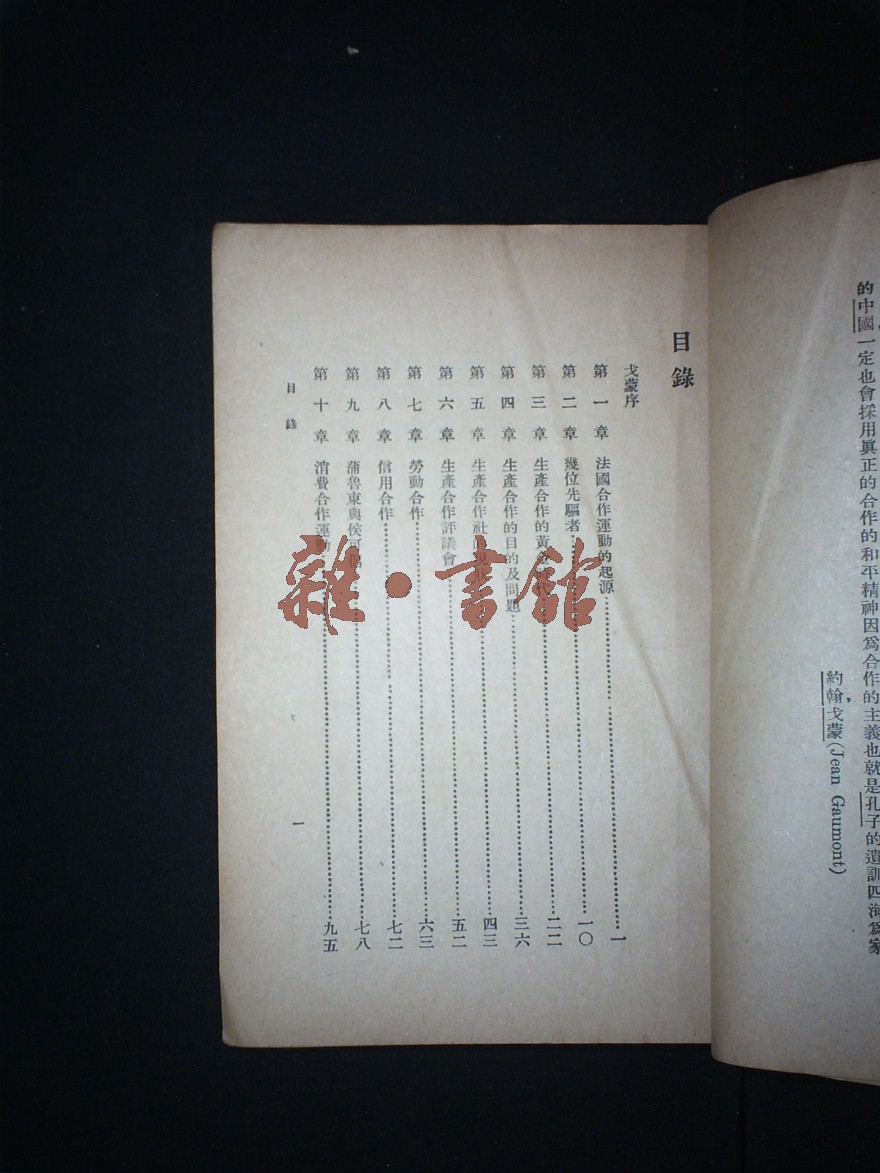 的中國一定也會採用眞正的合作的和平精神因爲合作的主義也就是孔子的遺訓四海爲家
約翰戈蒙(Jean Gaumont)
目錄
戈蒙序
第一章 法國合作運動的起源 一
第二章 幾位先驅者 一〇
第三章 生產合作的黃金時代 二二
第四章 生產合作的目的及問題 三六
第五章 生產合作社的現狀 四三
第六章 生產合作評議會 五二
第七章 勞動合作 六三
第八章 信用合作 七二
第九章 蒲魯東與侯可侶 七八
第十章 消費合作運動 九五
目錄
一
雜·書館